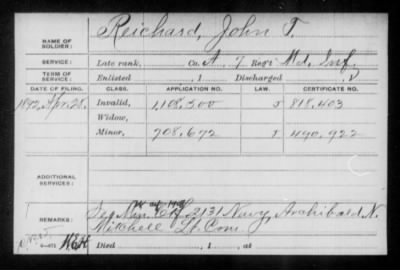 NAME OF SOLDIER: Reichard, John T.
SERVICE: Late rank, Co. A, 7 Reg't Md. Inf.
TERM OF SERVICE: Enlisted , 1 Discharged , 1
DATE OF FILING. CLASS. APPLICATION NO. LAW. CERTIFICATE NO.
1892, Apr. 28. Invalid, 1,108,500 J 818,403
Widow,
Minor, 708,672 J 490,922
ADDITIONAL SERVICES:
REMARKS: Navy, Archibald N.
Mitchell Lt. Com.
Died , 1 , at